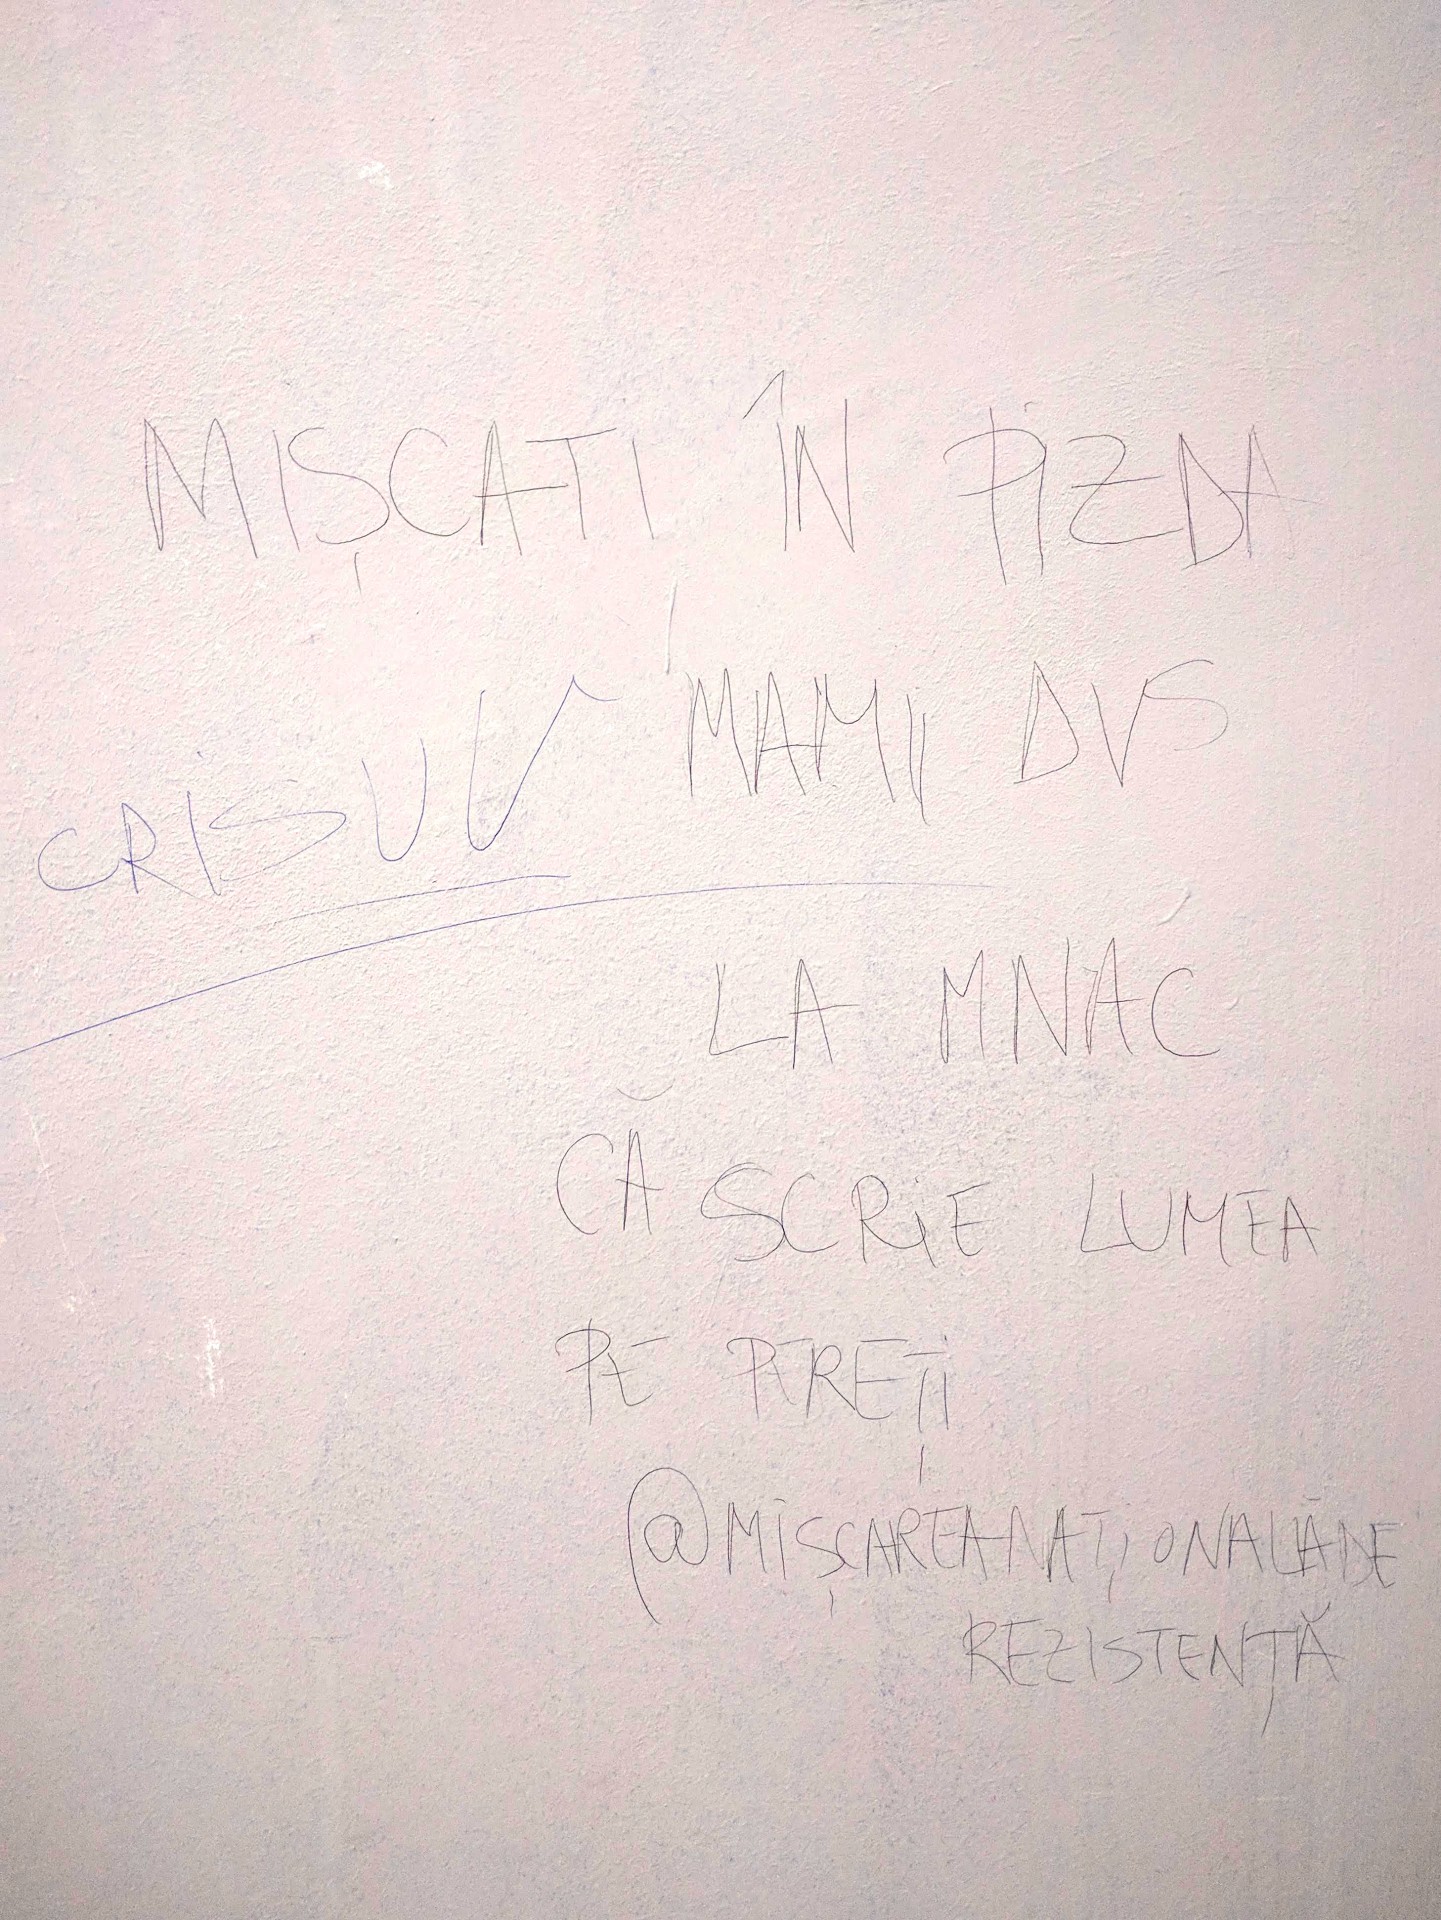 MIȘCATI ÎN PIZDA
MAMII DVS
CRISUV
LA MNAC
CĂ SCRIE LUMEA
PE PEREȚI
@MIȘCAREANAȚIONALĂDE
REZISTENȚĂ